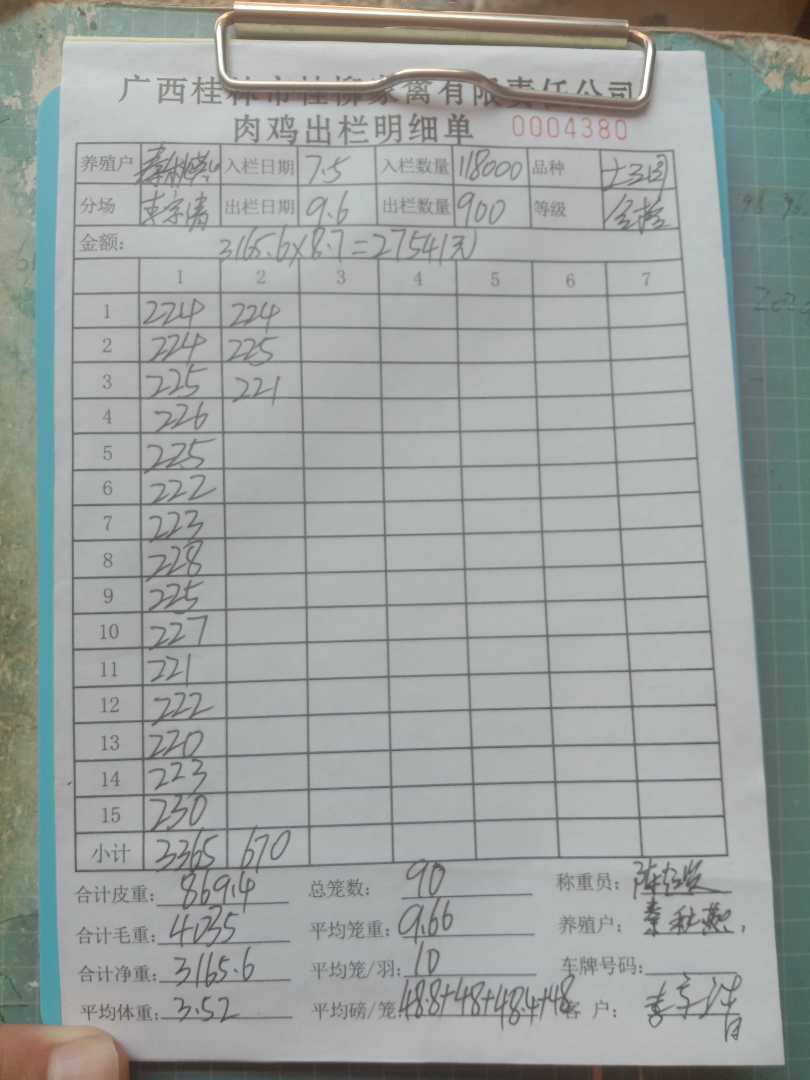 广西桂林市桂柳家禽有限责任公司
肉鸡出栏明细单 0004380
养殖户 秦秋燕 入栏日期 7.5 入栏数量 118000 品种 土三
分场 出栏日期 9.6 出栏数量 900 等级 全检
金额: 3165.6×8.7=27541元
1 2 3 4 5 6 7
1 224 224
2 224 225
3 225 221
4 226
5 225
6 222
7 223
8 228
9 225
10 227
11 221
12 222
13 220
14 223
15 230
小计 3365 670
合计皮重: 869.4 总笼数: 90 称重员: 陈
合计毛重: 4035 平均笼重: 9.66 养殖户: 秦秋燕
合计净重: 3165.6 平均笼/羽: 10 车牌号码:
平均体重: 3.52 平均磅/笼: 48.8+48+48.4+48 客 户: